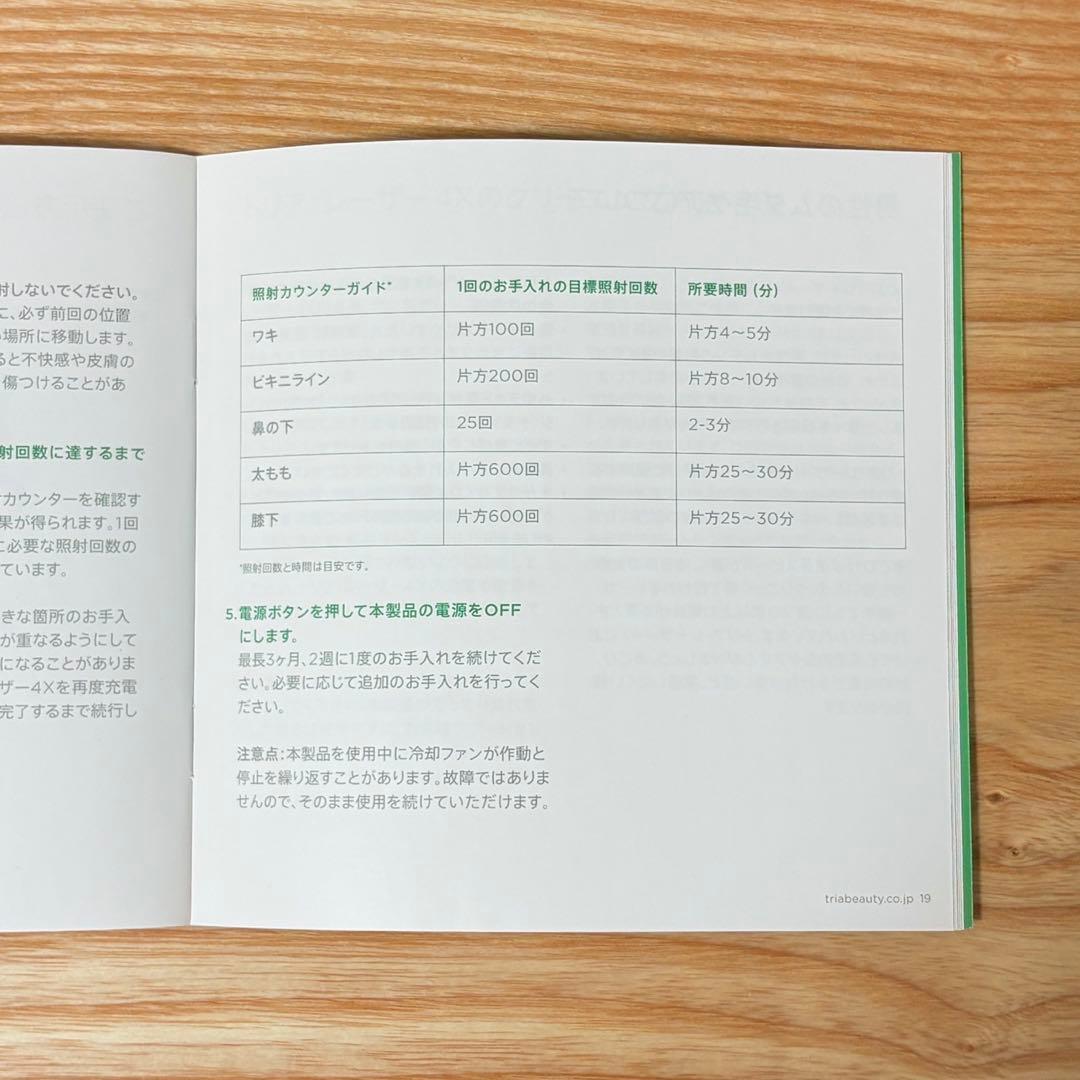 射しないでください。
に、必ず前回の位置
い場所に移動します。
ると不快感や皮膚の
傷つけることがあ
射回数に達するまで
カウンターを確認す
果が得られます。1回
に必要な照射回数の
ています。
きな箇所のお手入
が重なるようにして
になることがありま
ザー4Xを再度充電
完了するまで続行し
照射カウンターガイド* 1回のお手入れの目標照射回数 所要時間 (分)
ワキ 片方100回 片方4〜5分
ビキニライン 片方200回 片方8〜10分
鼻の下 25回 2-3分
太もも 片方600回 片方25〜30分
膝下 片方600回 片方25〜30分
*照射回数と時間は目安です。
5.電源ボタンを押して本製品の電源をOFF
にします。
最長3ヶ月、2週に1度のお手入れを続けてくだ
さい。必要に応じて追加のお手入れを行ってく
ださい。
注意点:本製品を使用中に冷却ファンが作動と
停止を繰り返すことがあります。故障ではありま
せんので、そのまま使用を続けていただけます。
triabeauty.co.jp 19